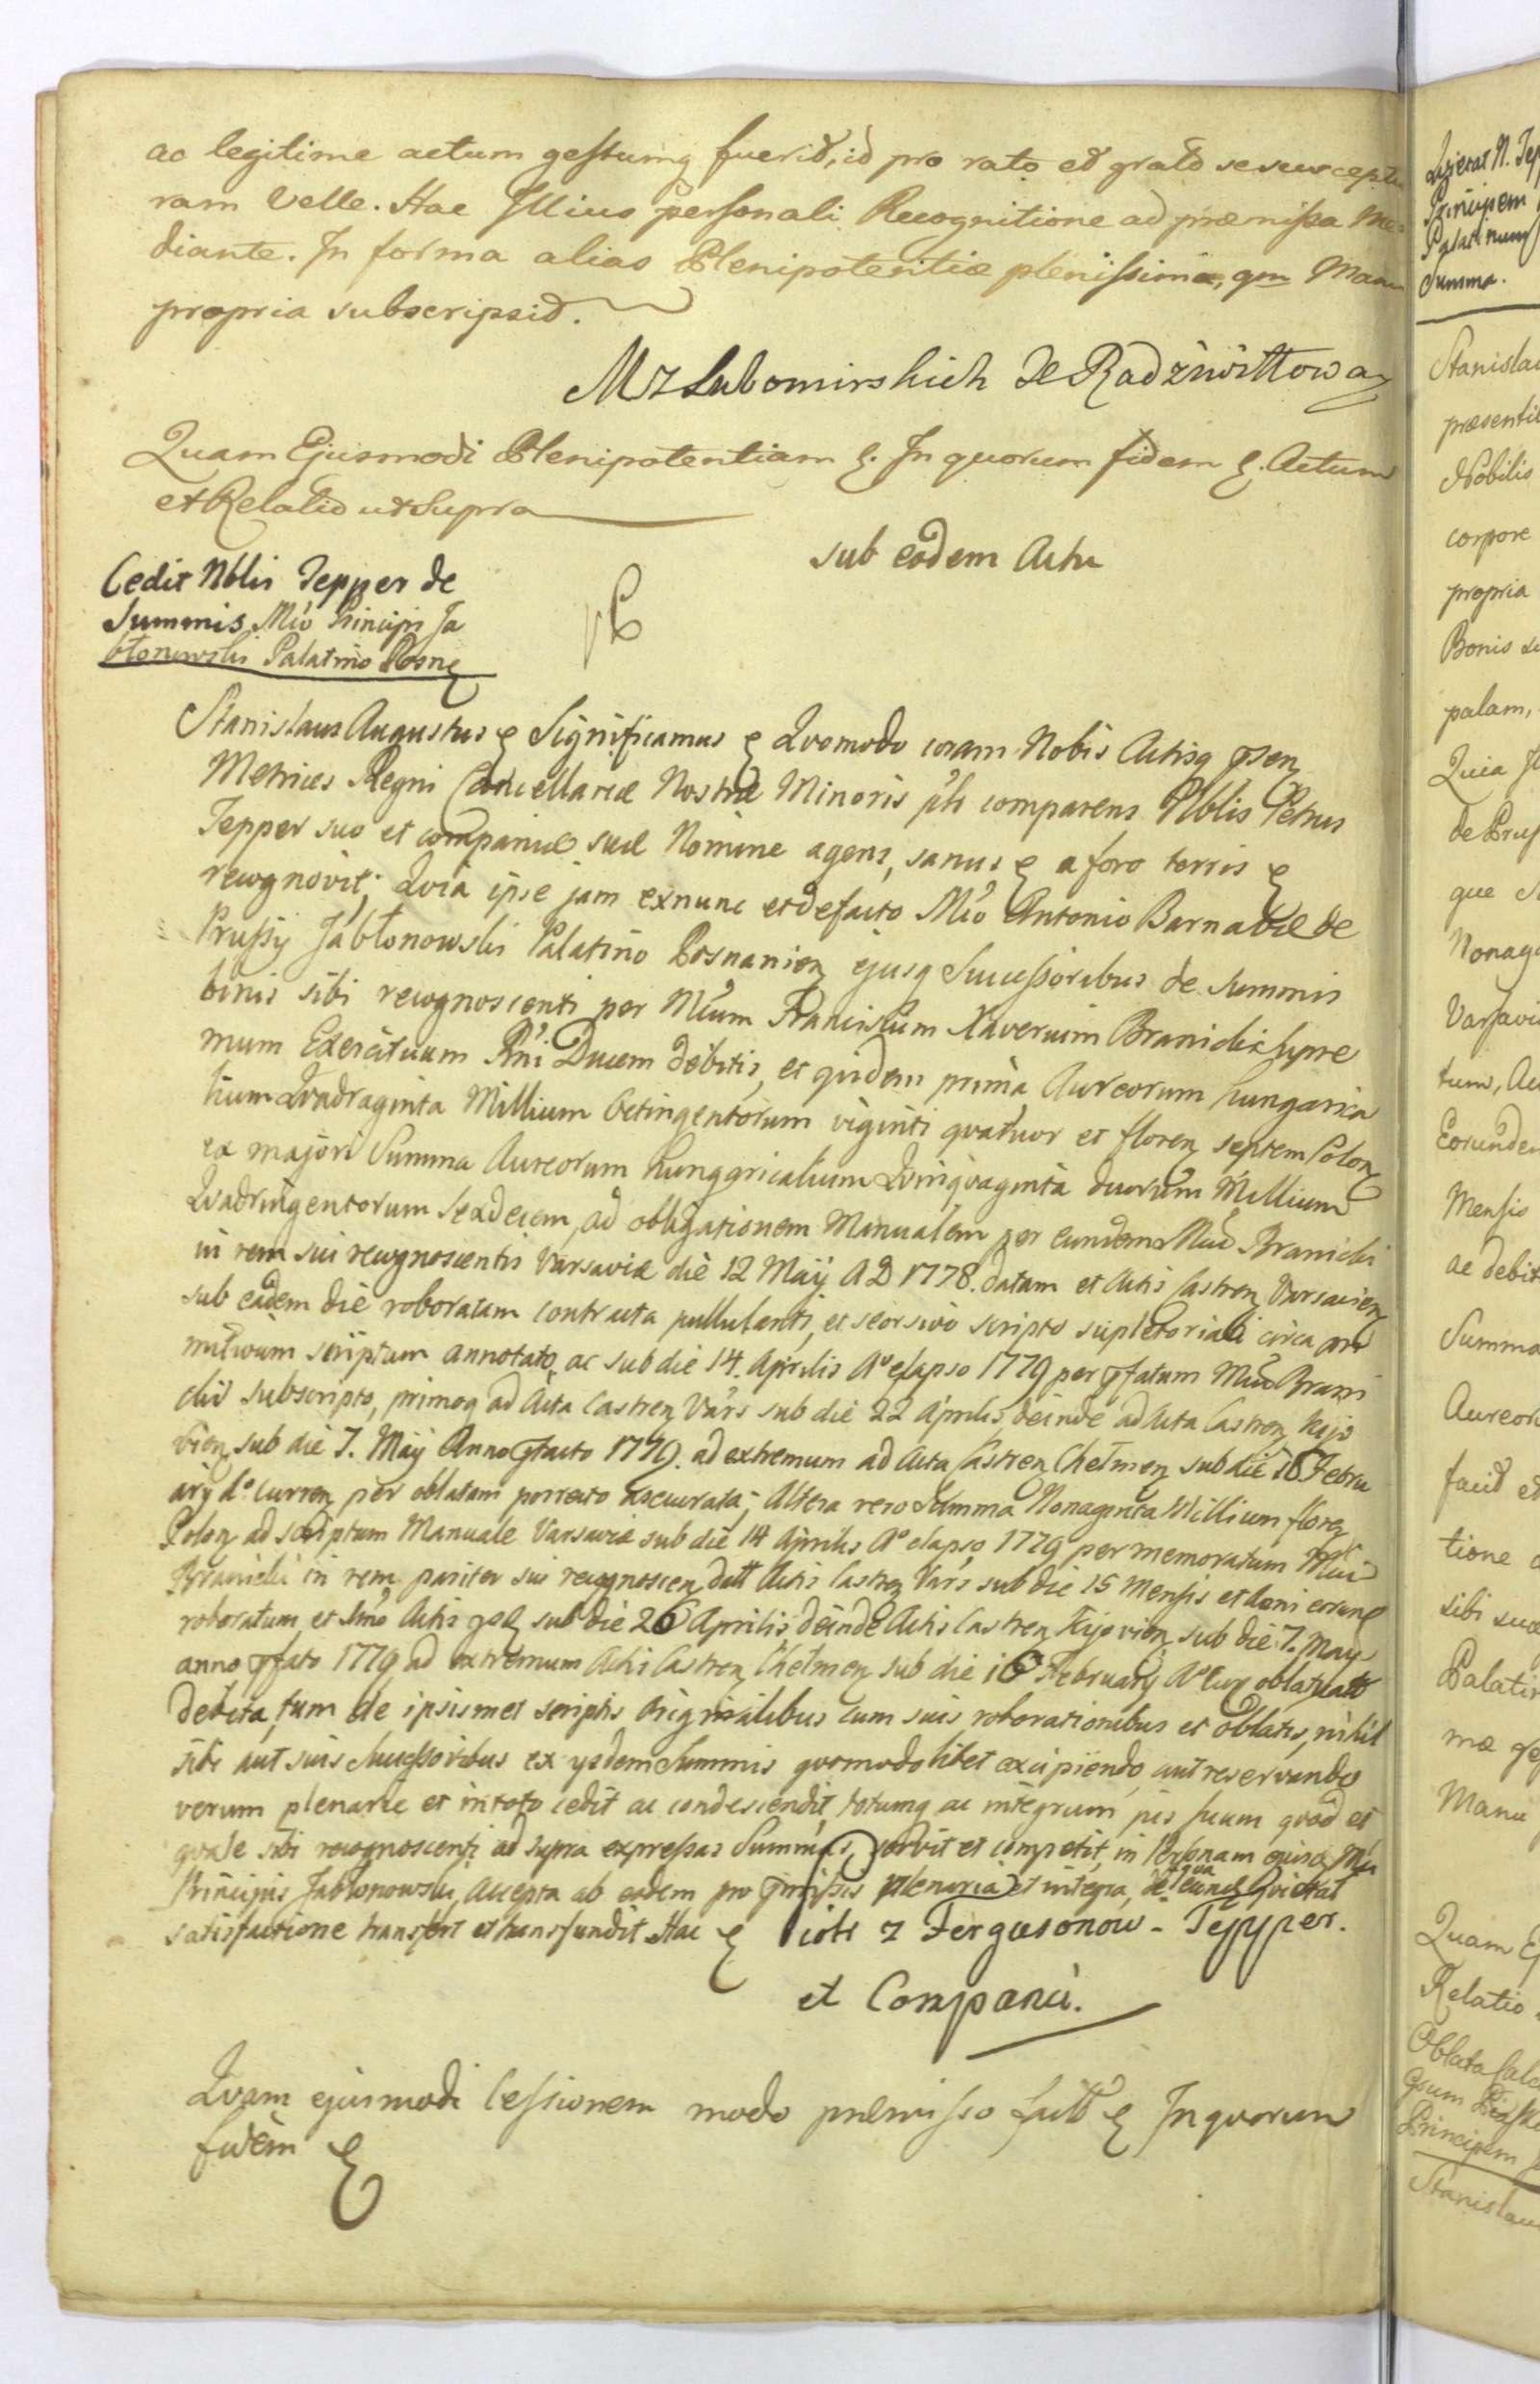 ac legitime actum gestumq fuerit, id pro rato et grato se susceptu
ram Velle. Hac Illius personali Recognitione ad præmissa Me
diante. In forma alias Plenipotentiæ plenissimæ, qm Manu
propria subscripsit.
M z Lubomirskich Xe Radziwiłłowa
Quam Ejusmodi Plenipotentiam &. In quorum fidem &. Actum
et Relatio ut Supra
sub eodem Actu
Cedit Nblis Tepper de
Summis Mco Principi Ja
błonowski Palatino Posn
Stanislaus Augustus & Significamus & Quomodo coram Nobis Actisq psen
Metrices Regni Cancellariæ Nostræ Minoris plr comparens Nblis Petrus
Tepper suo et companiæ suæ Nomine agens, sanus & a foro terris &
recognovit; Quia ipse jam exnunc et defacto Mco Antonio Barnabæ de
Prussy Jabłonowski Palatino Posnanien ejusq Successoribus de Summis
binis sibi recognoscenti per Mcum Franciscum Xaverium Branicki supre
mum Exercituum Rni Ducem debitis, et quidem prima Aureorum hungarica
lium Quadraginta Millium Octingentorum viginti quatuor et floren septem Polon
ex majori Summa Aureorum hungaricalium Quinquaginta duorum Millium
Quadringentorum Sexdecem, ad obligationem Manualem per eundem Mcum Branicki
in rem sui recognoscentis Varsaviæ die 12 Maÿ A D 1778. datam et Actis Castren Varsavien
sub eadem die roboratam contracta pullulanti, et seorsivo scripto supletoriali circa pri
mitivum scriptum annotato, ac sub die 14. Aprilis Ao elapso 1779 per pfatum Mcum Brani
cki subscripto, primoq ad Acta Castren Vars sub die 22 Aprilis, deinde ad Acta Castren Kijo
vien sub die 7. Maÿ Anno pfacto 1779. ad extremum ad Acta Castren Chełmen sub die 16 Febru
arÿ Ao curren per oblatam porrecto assecurata; Altera vero Summa Nonaginta Millium floren
Polon ad scriptum Manuale Varsaviæ sub die 14 Aprilis Ao elapso 1779 per memoratum Mcum
Branicki in rem pariter sui recognoscen datt Actis Castren Vars sub die 15 Mensis et Anni eorund
roboratum et Imo Actis sub die 26 Aprilis deinde Actis Castren Kijovien sub die 7. May
anno pfato 1779 ad extremum Actis Castren Chełmen sub die 16 Februarÿ Ao cur oblatuatt
debita, tum de ipsismet scriptis originalibus cum suis roborationibus et oblatis, nihil
sibi aut suis Successoribus ex ysdem Summis quomodolibet excipiendo, aut reservando
verum plenarie et in toto cedit ac condescendit, totumq ac integrum jus suum quod et
quale sibi recognoscenti ad supra expressas Summas servit et competit, in Personam ejusq Mci
Principis Jabłonowski, Accepta ab eodem pro præmissis plenaria et integra, de qua eund Quietat
satisfactione transfert et transfundit. Hac & Piotr z Fergusonow - Tepper.
et Companii.
Quam ejusmodi Cessionem modo præmisso factt & In quorum
fidem &